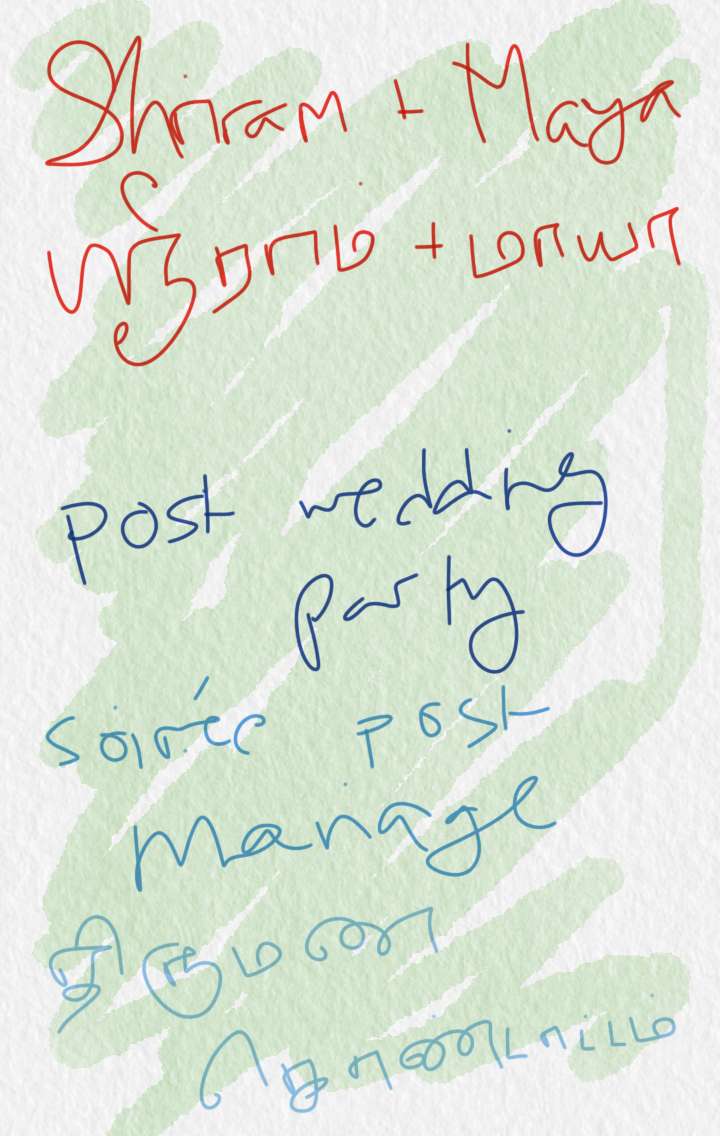 Shriram + Maya
ஸ்ரீராம் + மாயா
post wedding
party
soirée post
mariage
திருமண
கொண்டாட்டம்